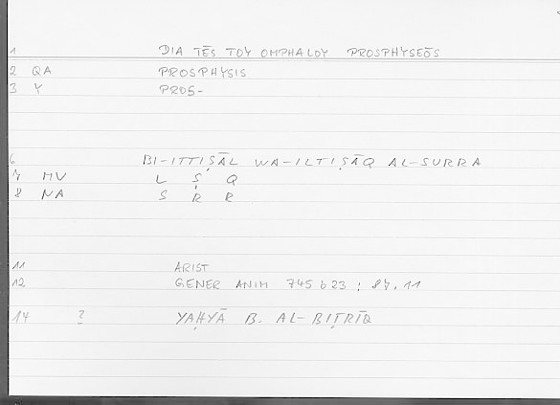 1 DIA TĒS TOY OMPHALOY PROSPHYSEŌS
2 QA PROSPHYSIS
3 Y PROS-
6 BI-ITTIṢĀL WA-ILTIṢĀQ AL-SURRA
7 MV L Ṣ Q
8 NA S R R
11 ARIST
12 GENER ANIM 745 b 23 ; 87.11
14 ? YAḤYĀ B. AL-BIṬRĪQ